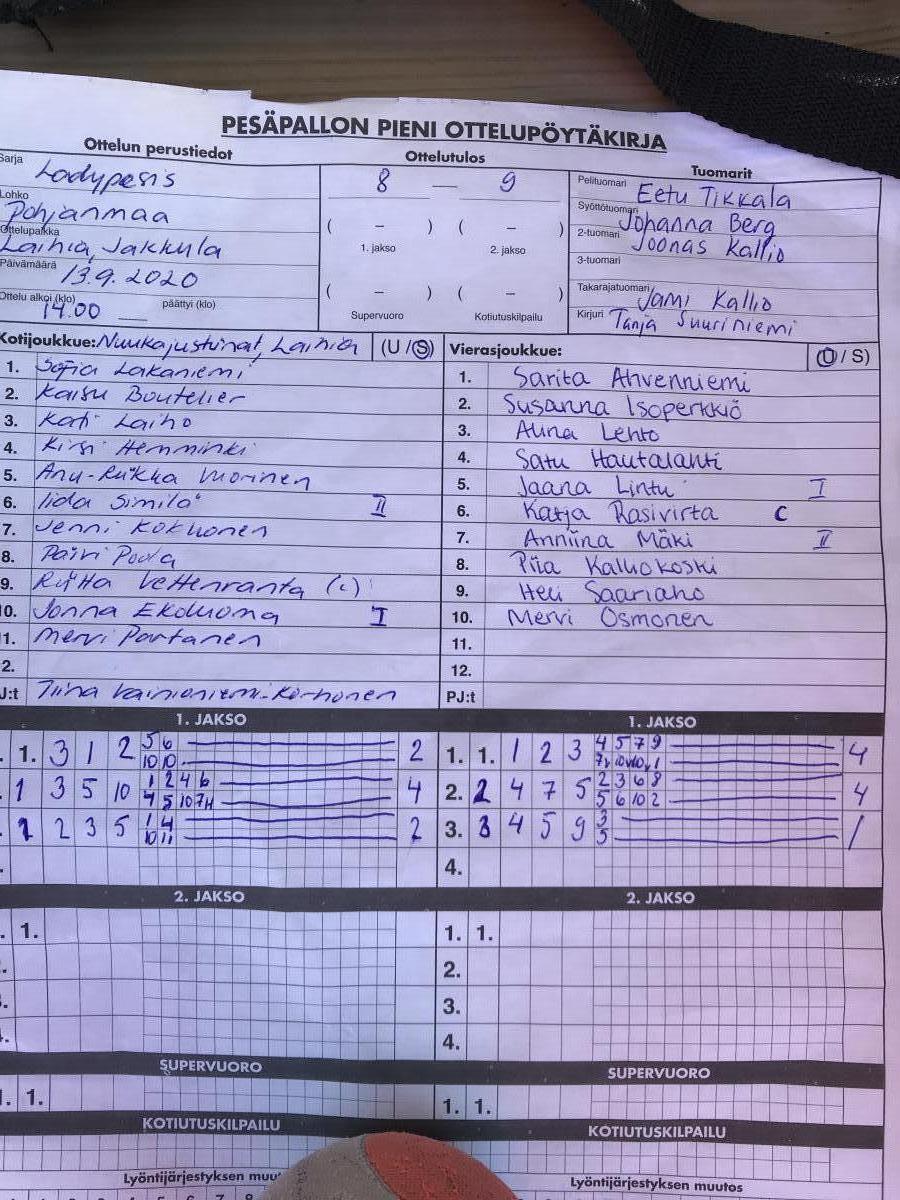 PESÄPALLON PIENI OTTELUPÖYTÄKIRJA
Ottelun perustiedot
Ottelutulos
Tuomarit
Sarja Ladypesis
Lohko Pohjanmaa
Ottelupaikka Laihia, Jakkula
Päivämäärä 13.9.2020
Ottelu alkoi (klo) 14.00 päättyi (klo)
8 — 9
( – ) ( – )
1. jakso 2. jakso
( – ) ( – )
Supervuoro Kotiutuskilpailu
Pelituomari Eetu Tikkala
Syöttötuomari Johanna Berg
2-tuomari Joonas Kallio
3-tuomari
Takarajatuomari Jami Kallio
Kirjuri Tanja Suuriniemi
Kotijoukkue: Laihia (U / S)
1. Sofia Lakaniemi
2. Kaisu Boutelier
3. Kati Laiho
4. Kirsi Hemminki
5. Anu-Riikka Vuorinen
6. Iida Similä II
7. Jenni Kokkonen
8. Päivi
9. Riitta Vettenranta (c)
10. Jonna Ekoluoma I
1. Mervi Partanen
2.
J:t Tiina Vainioniemi-Korhonen
Vierasjoukkue: (U / S)
1. Sarita Ahvenniemi
2. Susanna Isoperkkiö
3. Auna Lehto
4. Satu Hautalahti
5. Jaana Lintu I
6. Katja Rasivirta C
7. Anniina Mäki II
8. Piia Kalliokoski
9. Heli Saariaho
10. Mervi Osmonen
11.
12.
PJ:t
1. JAKSO
1. 3 1 2 5 6 2
10 10
1 3 5 10 1 2 4 6 4
4 5 10 7H
1 2 3 5 1 4 2
10 11
1. JAKSO
1. 1. 1 2 3 4 5 7 9 4
2. 2 4 7 5 2 3 6 8 4
5 6 10 2
3. 3 4 5 9 3 1
5
4.
2. JAKSO
1.
2. JAKSO
1. 1.
2.
3.
4.
SUPERVUORO
1. 1.
SUPERVUORO
1. 1.
KOTIUTUSKILPAILU
KOTIUTUSKILPAILU
Lyöntijärjestyksen
Lyöntijärjestyksen muutos